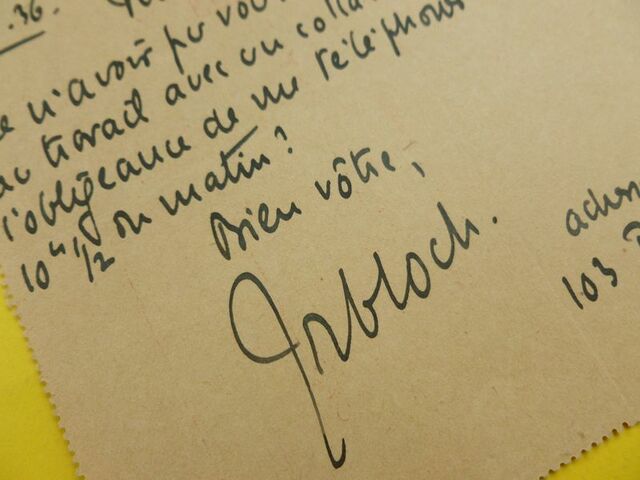 .36.
n'avoir pu vou
travail avec un colla
l'obligeance de me téléphoner
10h 1/2 du matin?
Bien vôtre,
JRBloch.
103